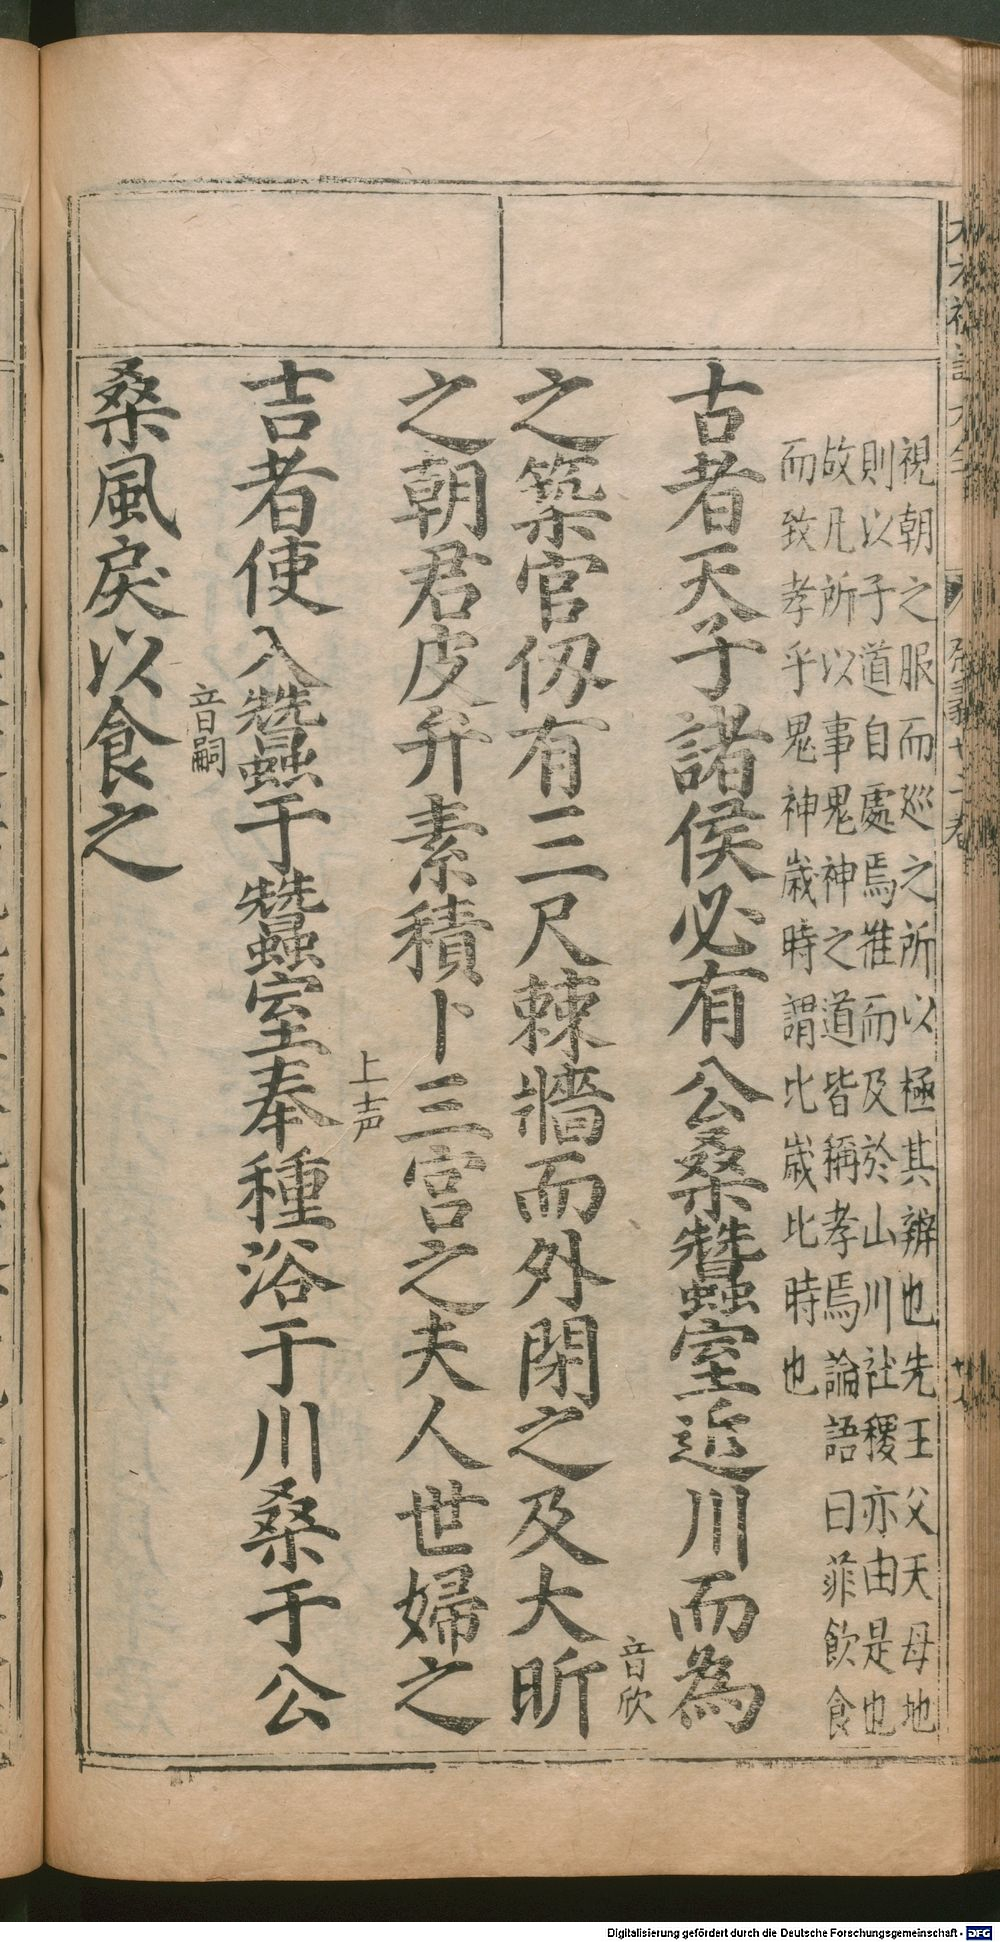 視朝之服而巡之所以極其辨也先王父天母地
則以子道自處焉推而及於山川社稷亦由是也
故凡所以事鬼神之道皆稱孝焉論語曰菲飲食
而致孝乎鬼神歲時謂比歲比時也
古者天子諸侯必有公桑蠶室近川而為
音欣
之築宮仞有三尺棘牆而外閉之及大昕
之朝君皮弁素積卜三宮之夫人世婦之
上声
吉者使入蠶于蠶室奉種浴于川桑于公
音嗣
桑風戾以食之
Digitalisierung gefördert durch die Deutsche Forschungsgemeinschaft - DFG